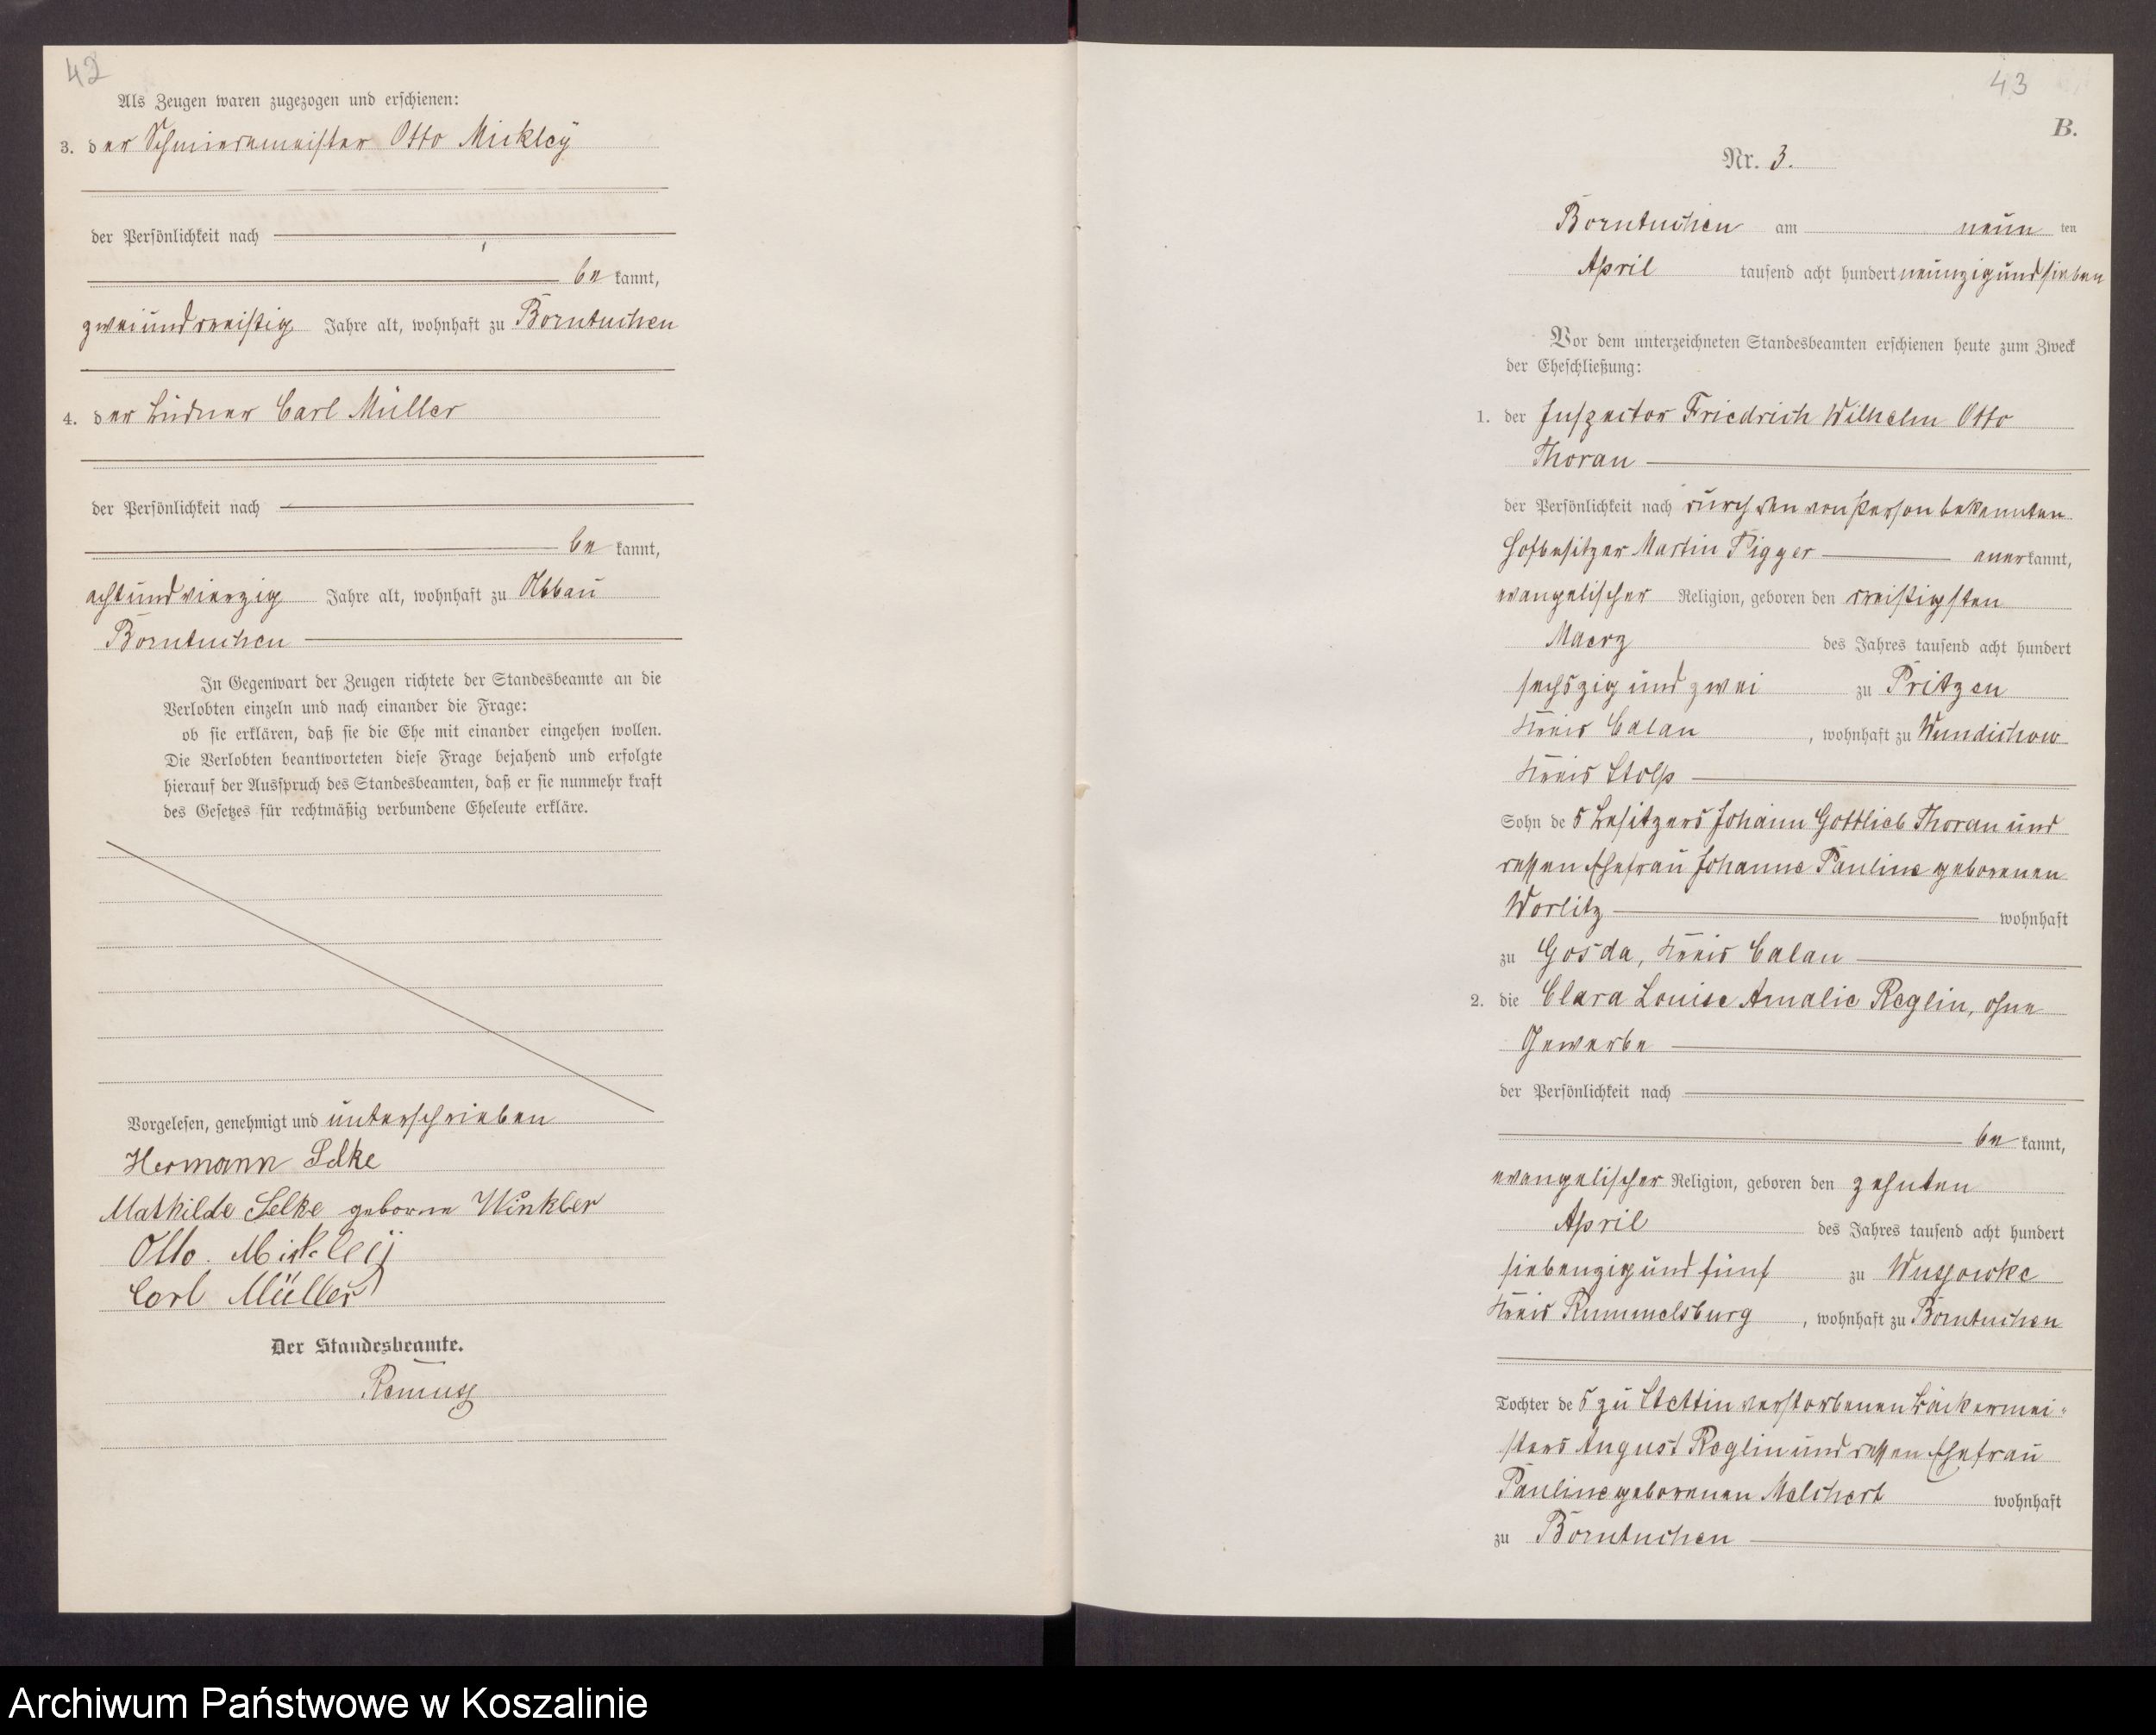 42
Als Zeugen waren zugezogen und erschienen:
3. der Schmiedemeister Otto Mickleÿ
der Persönlichkeit nach
be kannt,
zweiunddreißig Jahre alt, wohnhaft zu Borntuchen
4. der Büdner Carl Müller
der Persönlichkeit nach
be kannt,
achtundvierzig Jahre alt, wohnhaft zu Abbau
Borntuchen
In Gegenwart der Zeugen richtete der Standesbeamte an die
Verlobten einzeln und nach einander die Frage:
ob sie erklären, daß sie die Ehe mit einander eingehen wollen.
Die Verlobten beantworteten diese Frage bejahend und erfolgte
hierauf der Ausspruch des Standesbeamten, daß er sie nunmehr kraft
des Gesetzes für rechtmäßig verbundene Eheleute erkläre.
Vorgelesen, genehmigt und unterschrieben
Hermann Selke
Mathilde Selke geborne Winkler
Otto. Mickleÿ
Carl Müller
Der Standesbeamte.
Ramuss
43
B.
Nr. 3.
Borntuchen am neun ten
April tausend acht hundert neunzig und sieben
Vor dem unterzeichneten Standesbeamten erschienen heute zum Zweck
der Eheschließung:
1. der Inspector Friedrich Wilhelm Otto
Thoran
der Persönlichkeit nach durch den von Person bekannten
Hofbesitzer Martin Pigger anerkannt,
evangelischer Religion, geboren den dreißigsten
Maerz des Jahres tausend acht hundert
sechszig und zwei zu Pritzen
Kreis Calau, wohnhaft zu Wundichow
Kreis Stolp
Sohn des Besitzers Johann Gottlieb Thoran und
dessen Ehefrau Johanne Pauline geborenen
Worlitz wohnhaft
zu Gosda, Kreis Calau
2. die Clara Louise Amalie Reglin, ohne
Gewerbe
der Persönlichkeit nach
be kannt,
evangelischer Religion, geboren den zehnten
April des Jahres tausend acht hundert
siebenzig und fünf zu Wussowke
Kreis Rummelsburg, wohnhaft zu Borntuchen
Tochter des zu Stettin verstorbenen Bäckermei-
sters August Reglin und dessen Ehefrau
Pauline geborenen Melchert wohnhaft
zu Borntuchen
Archiwum Państwowe w Koszalinie